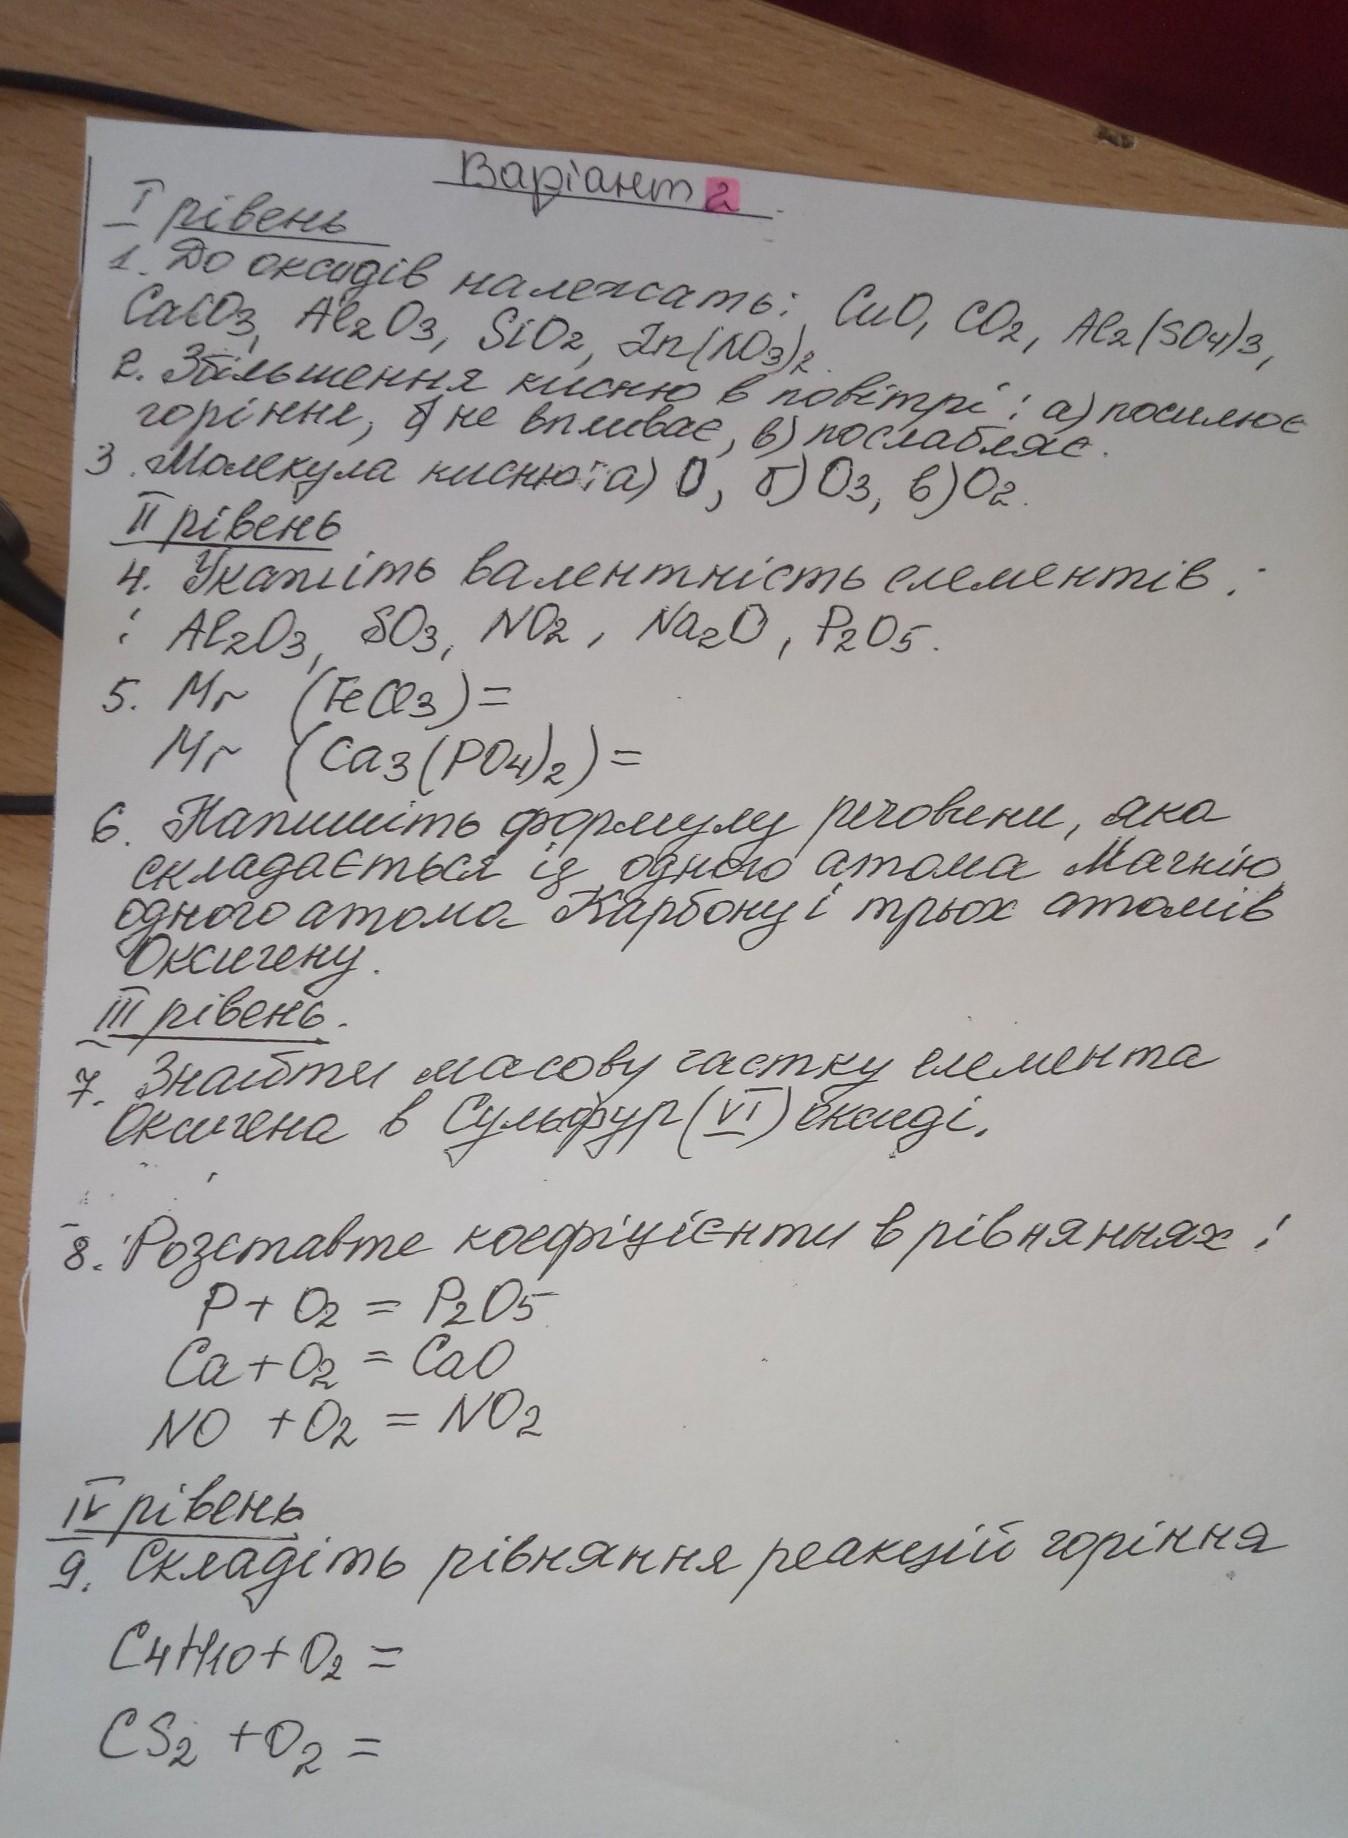 Варіант 2.
I рівень
1. До оксидів належать: CuO, CO2, Al2(SO4)3,
CaCO3, Al2O3, SiO2, Zn(NO3)2.
2. Збільшення кисню в повітрі: а) посилює
горіння, б) не впливає, в) послабляє.
3. Молекула кисню: а) O, б) O3, в) O2.
II рівень
4. Укажіть валентність елементів:
: Al2O3, SO3, NO2, Na2O, P2O5.
5. Mr (FeCl3) =
Mr (Ca3(PO4)2) =
6. Напишіть формулу речовини, яка
складається із одного атома Магнію,
одного атома Карбону і трьох атомів
Оксигену.
III рівень.
7. Знайти масову частку елемента
Оксигена в Сульфур (VI) оксиді.
8. Розставте коефіцієнти в рівняннях:
P + O2 = P2O5
Ca + O2 = CaO
NO + O2 = NO2
IV рівень
9. Складіть рівняння реакцій горіння
C4H10 + O2 =
CS2 + O2 =